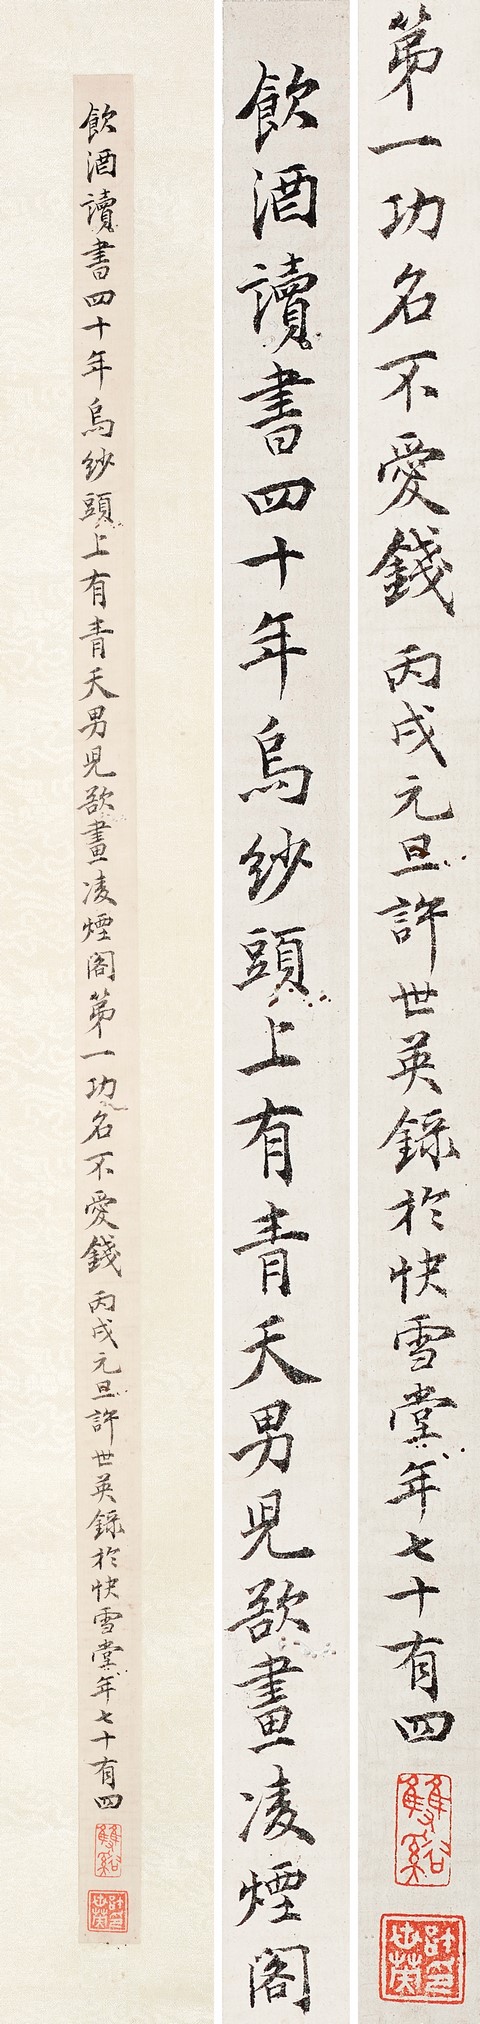 飲酒讀書四十年烏紗頭上有青天男児欲畫凌煙閣第一功名不愛錢 丙戌元旦許世英錄於快雪堂年七十有四
雙谿
許世英印
飲酒讀書四十年烏紗頭上有青天男児欲畫凌煙閣
第一功名不愛錢 丙戌元旦許世英錄於快雪堂年七十有四
雙谿
許世英印